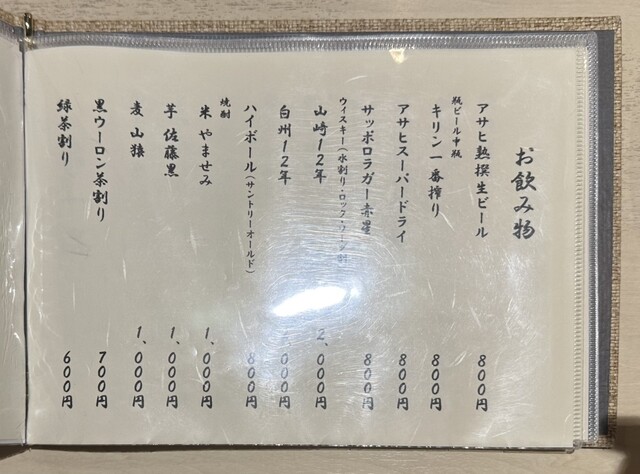 お飲み物
アサヒ熟撰生ビール 800円
瓶ビール中瓶
キリン一番搾り 800円
アサヒスーパードライ 800円
サッポロラガー赤星 800円
ウィスキー(水割り・ロック・ソーダ割)
山崎12年 2,000円
白州12年 000円
ハイボール(サントリーオールド) 800円
焼酎
米 やませみ 1,000円
芋 佐藤黒 1,000円
麦 山猿 1,000円
黒ウーロン茶割り 700円
緑茶割り 600円